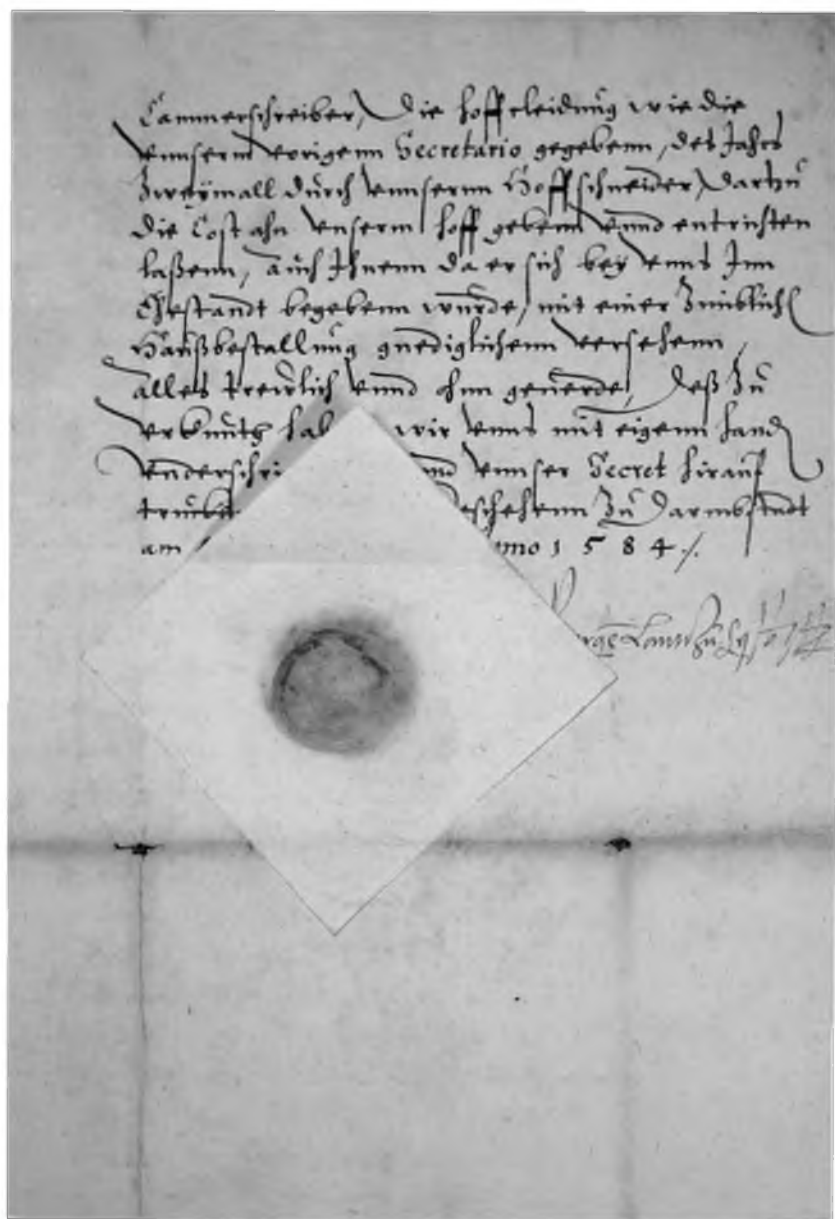 Cammerschreiber, die hoffcleidung wie die
vnnserm vorigenn Secretario gegebenn, des Jahrs
Zweymall durch vnnsernn Hoffschneider, dartzu
die Cost ahn vnserm hoff gebenn vnnd entrichten
laßenn, auch Ihnenn da er sich bey vnns Inn
Ehestandt begebenn wurde, mit einer Zimblich
Haußbestallung gnediglichenn versehenn,
alles trewlich vnnd ohnn geuerde, deß Zu
vrkundt hab wir vnns mit eigenn hand
vnderschri nd vnnser Secret hirauf
truck eschehenn Zu Darmbstadt
am nno 1584 ⁒